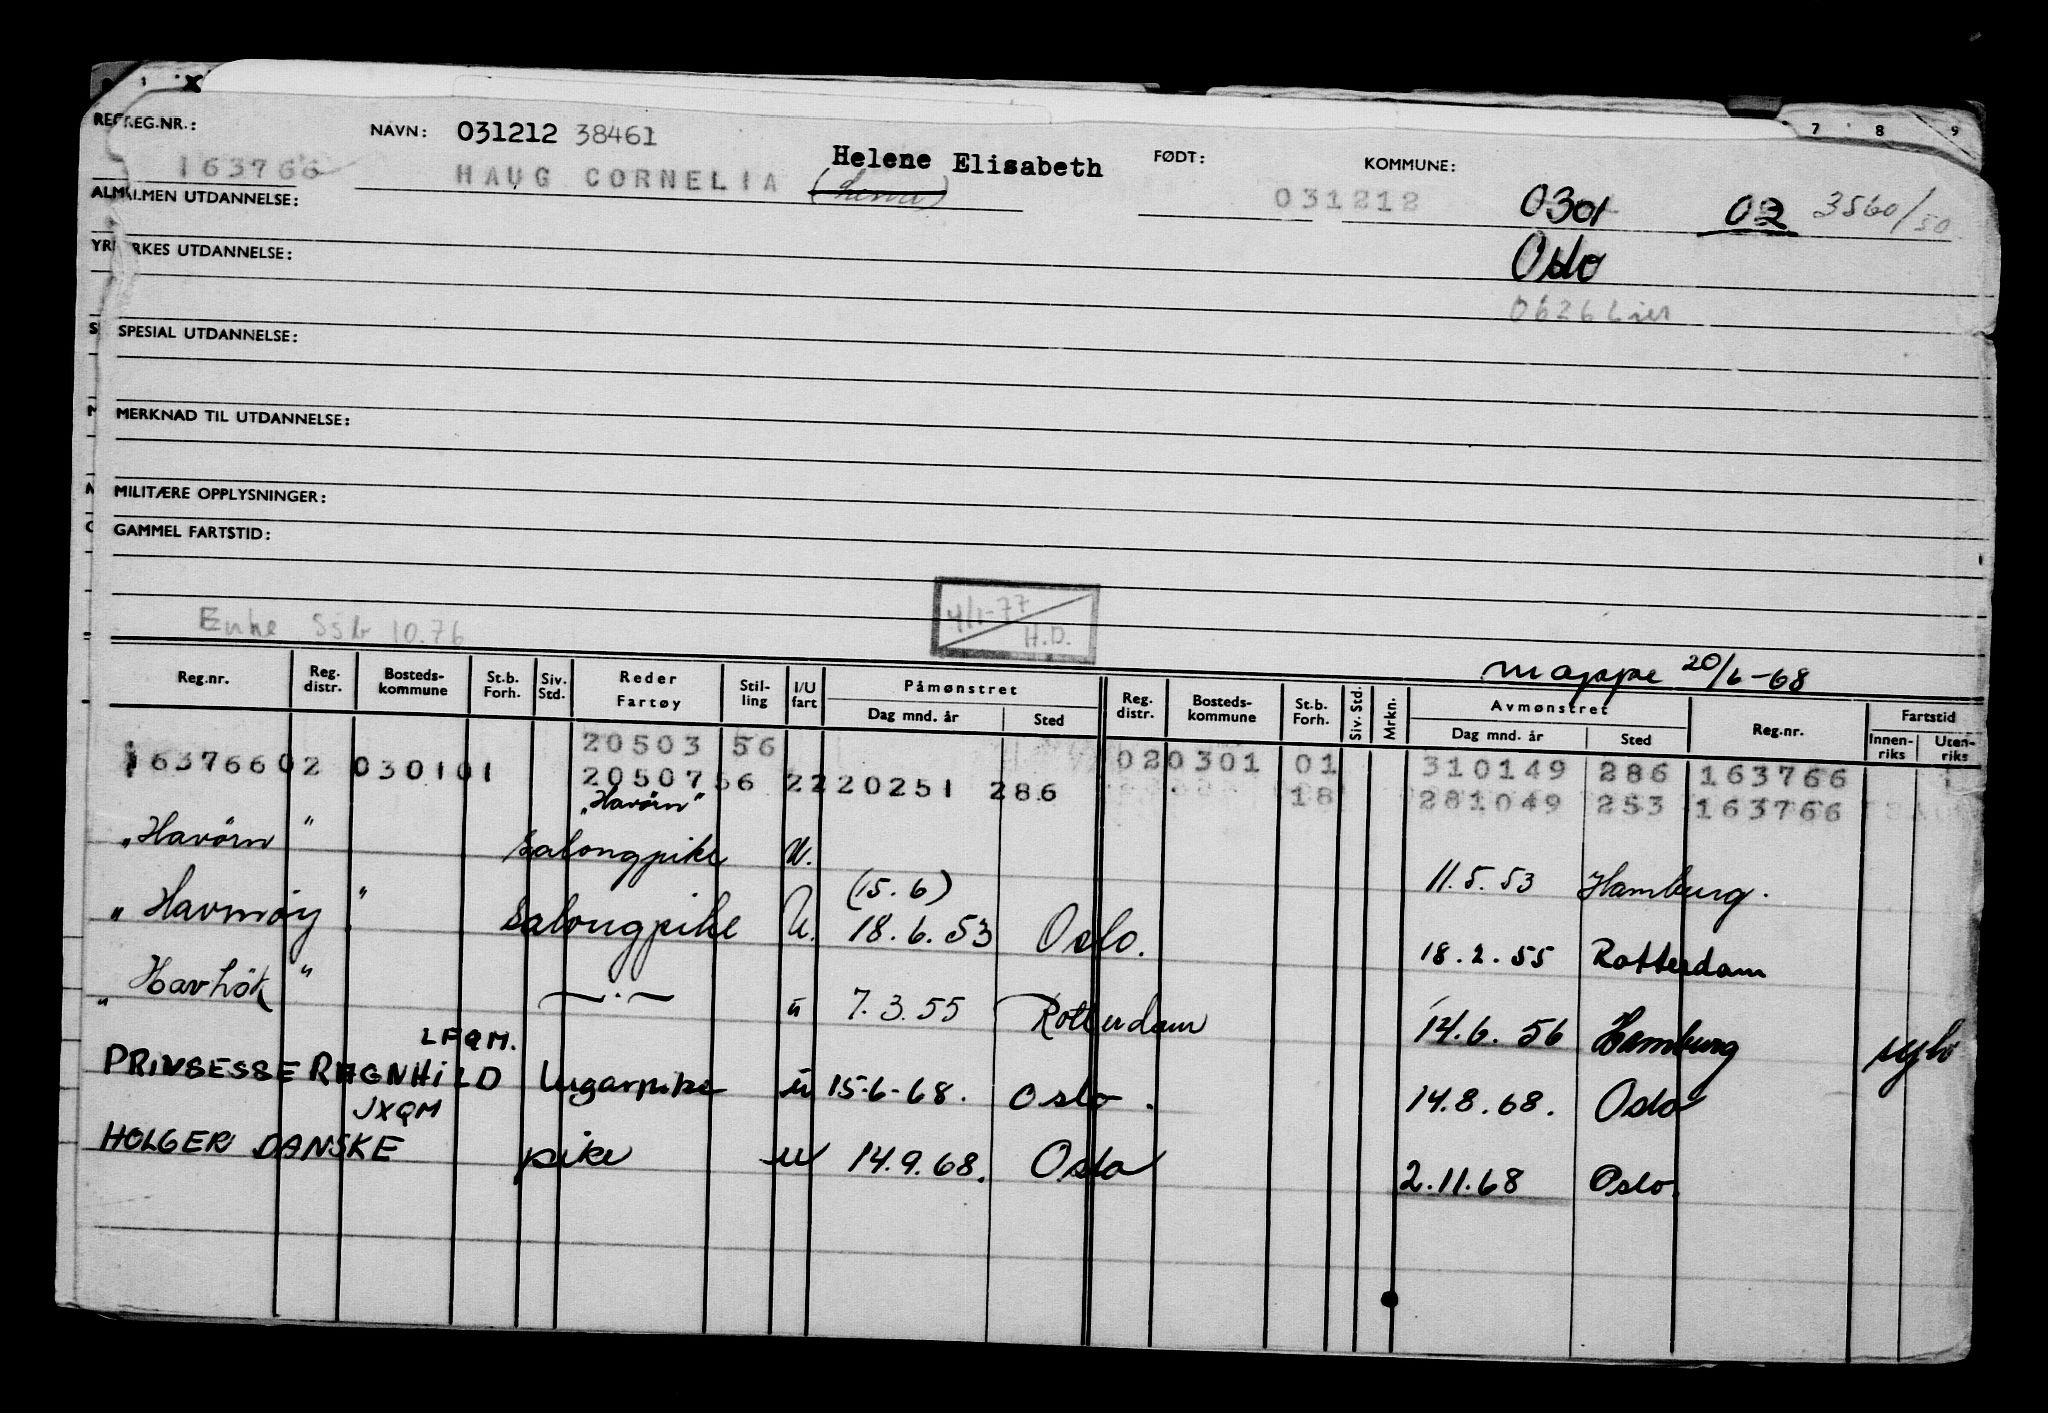 REG.NR.: NAVN: 031212 38461 FØDT: KOMMUNE: 7 8 9
163766 HAUG CORNELIA Helene Elisabeth 031212 0301 02 3560/50
ALMEN UTDANNELSE:
Oslo
YRKES UTDANNELSE:
0626 Lier
SPESIAL UTDANNELSE:
MERKNAD TIL UTDANNELSE:
MILITÆRE OPPLYSNINGER:
GAMMEL FARTSTID:
4/1-77
H.D.
Enke SSB 10.76
mappe 20/6-68
Reg.nr. Reg. distr. Bosteds-kommune St.b. Forh. Siv. Std. Reder Fartøy Stil-ling I/U fart Påmønstret Dag mnd. år Sted Reg. distr. Bosteds-kommune St.b. Forh. Siv. Std. Mrkn. Avmønstret Dag mnd. år Sted Reg.nr. Fartstid Innen-riks Uten-riks
20503 56 020301 01 310149 286 163766
163766 02 0301 01 20507 56 22 220251 286 18 281049 253 163766
"Havörn"
"Havörn" Salongpike U. 11.5.53 Hamburg.
(15.6)
"Havmöy" Salongpike U. 18.6.53 Oslo. 18.2.55 Rotterdam
"Havhök" —·— u 7.3.55 Rotterdam 14.6.56 Hamburg
LFQM.
PRINSESSE RAGNHILD lugarpike u 15-6-68. Oslo. 14.8.68. Oslo
JXQM
HOLGER DANSKE pike u 14.9.68. Oslo 2.11.68 Oslo.